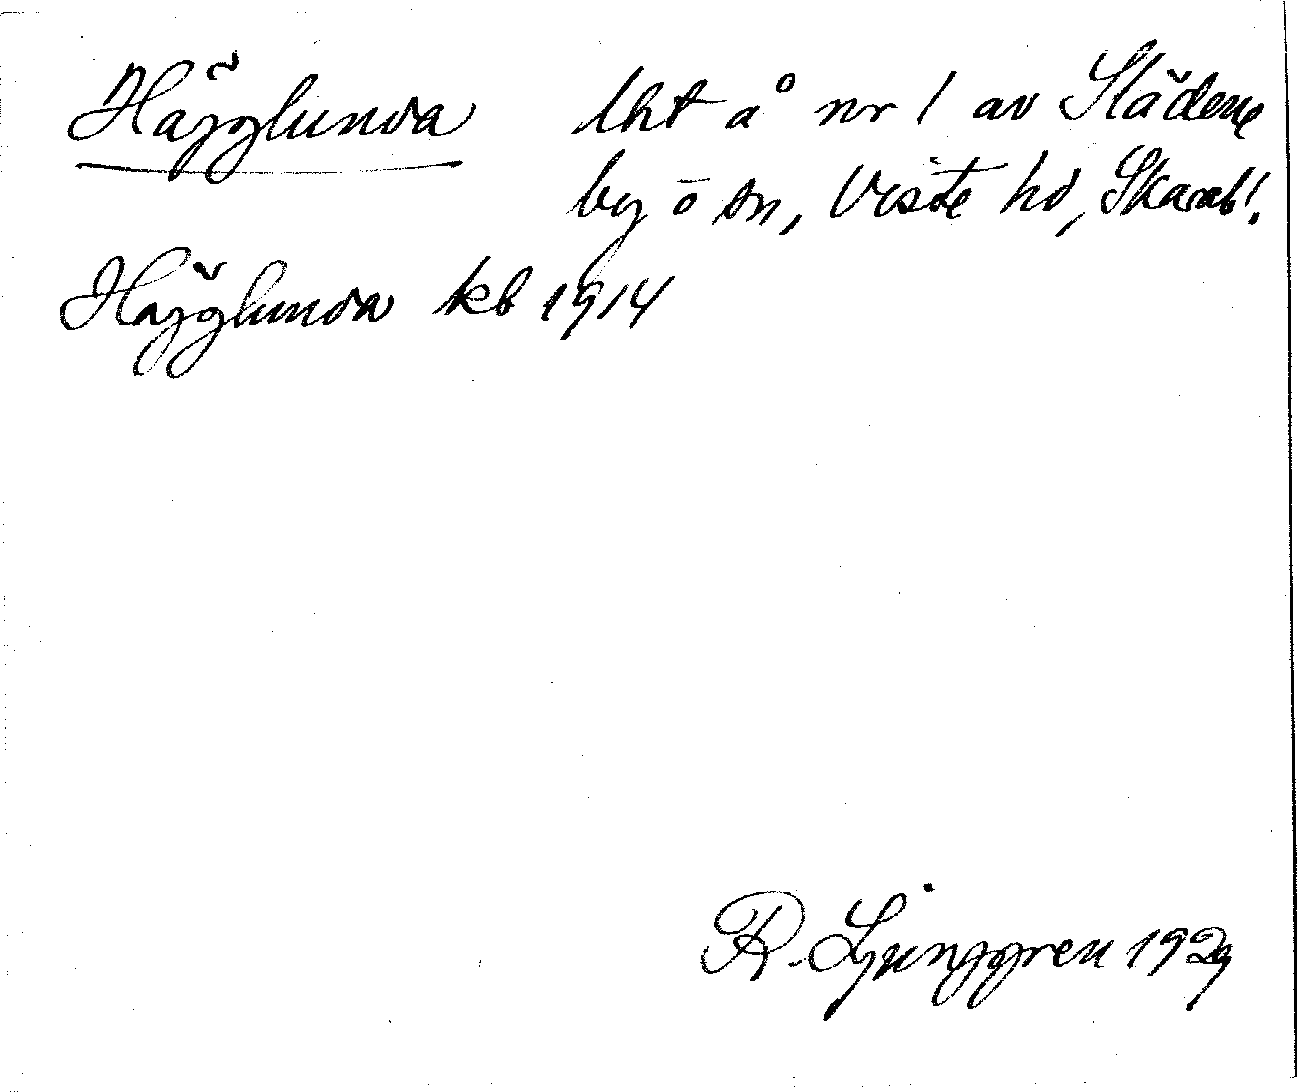 Hägglunda lht å nr 1 av Slädene
by o sn, Viste hd, Skarab!.
Hägglunda kb 1914
R. Ljunggren 1929